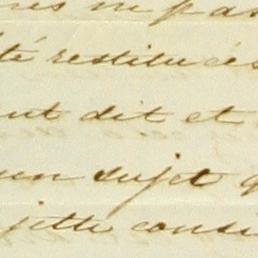 té restitués
ut dit et
un sujet
jette consi